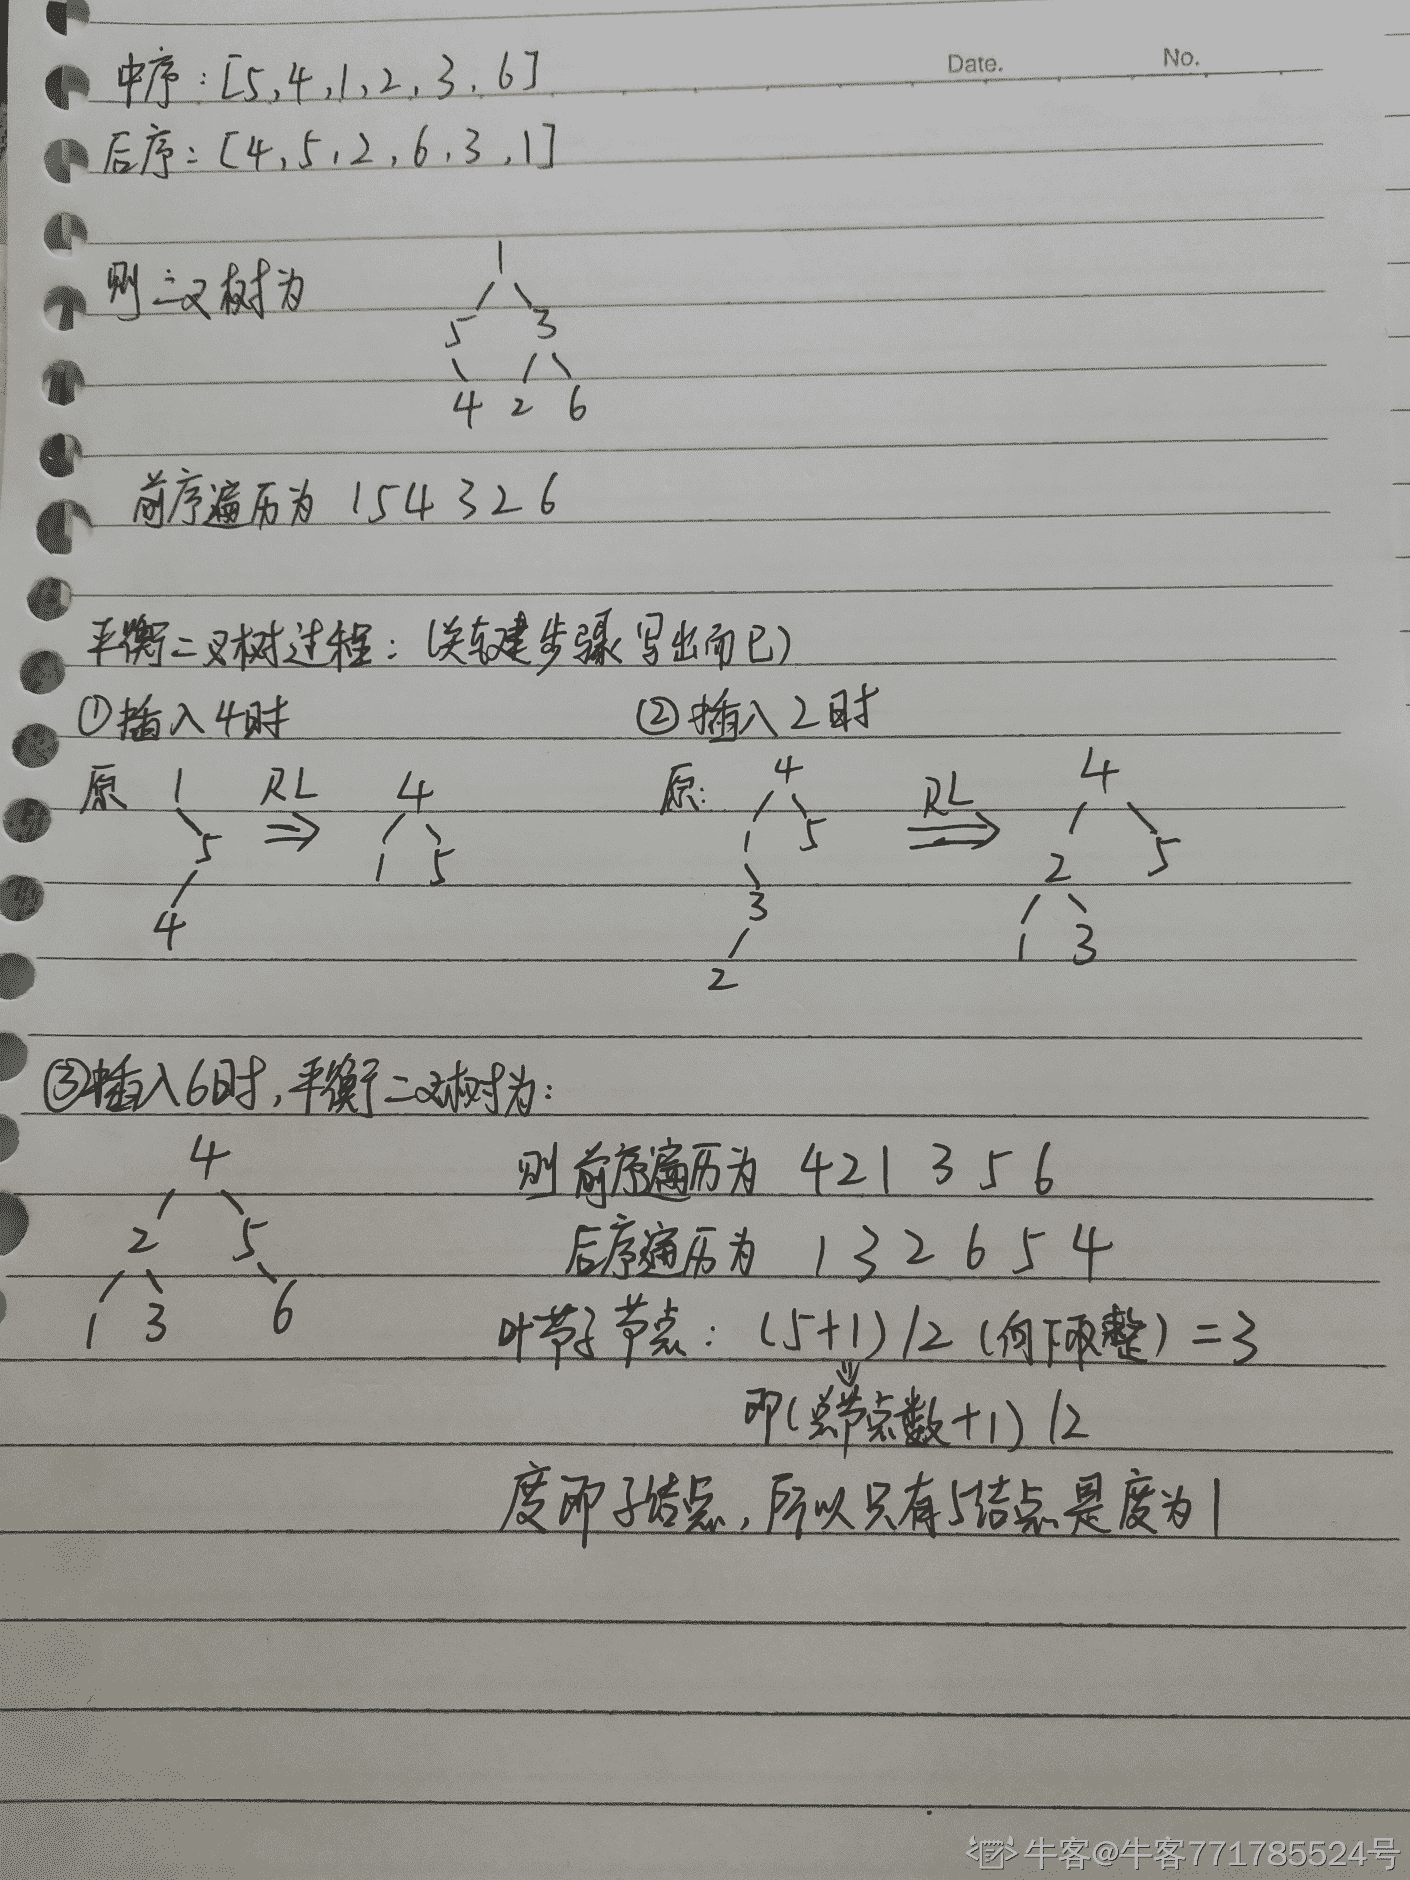 Date. No.
中序：[5,4,1,2,3,6]
后序：[4,5,2,6,3,1]
则二叉树为
1
5 3
4 2 6
前序遍历为 1 5 4 3 2 6
平衡二叉树过程：(关键步骤写出而已)
①插入4时 ②插入2时
原 1 RL 4
5 1 5
4
原: 4 RL 4
1 5 2 5
3 1 3
2
③插入6时,平衡二叉树为:
4
2 5
1 3 6
则前序遍历为 4 2 1 3 5 6
后序遍历为 1 3 2 6 5 4
叶子节点：(5+1)/2 (向下取整)=3
即(总节点数+1)/2
度即子结点,所以只有5结点是度为1
牛客@牛客771785524号